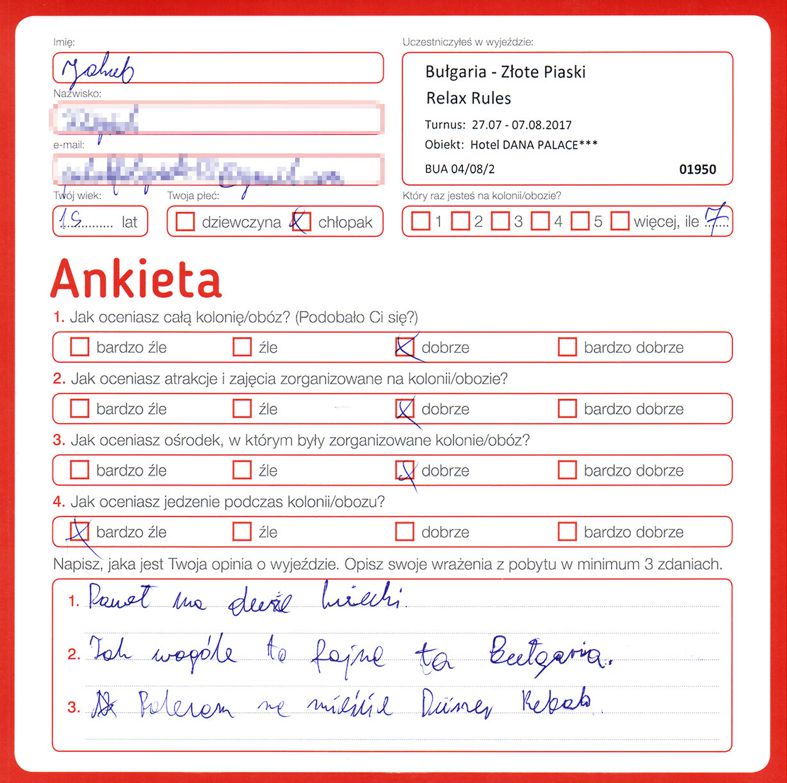 Imię:
Jakub
Uczestniczyłeś w wyjeździe:
Bułgaria - Złote Piaski
Relax Rules
Turnus: 27.07 - 07.08.2017
Obiekt: Hotel DANA PALACE***
BUA 04/08/2
01950
Nazwisko:
e-mail:
Twój wiek:
Twoja płeć:
Który raz jesteś na kolonii/obozie?
lat
dziewczyna
chłopak
1 2 3 4 5 więcej, ile 7
Ankieta
1. Jak oceniasz całą kolonię/obóz? (Podobało Ci się?)
bardzo źle źle dobrze bardzo dobrze
2. Jak oceniasz atrakcje i zajęcia zorganizowane na kolonii/obozie?
bardzo źle źle dobrze bardzo dobrze
3. Jak oceniasz ośrodek, w którym były zorganizowane kolonie/obóz?
bardzo źle źle dobrze bardzo dobrze
4. Jak oceniasz jedzenie podczas kolonii/obozu?
bardzo źle źle dobrze bardzo dobrze
Napisz, jaka jest Twoja opinia o wyjeździe. Opisz swoje wrażenia z pobytu w minimum 3 zdaniach.
1. Paweł ma duże
2. Jak wogóle to fajne ta Bułgaria.
3. Polecam na mieście Kebab.